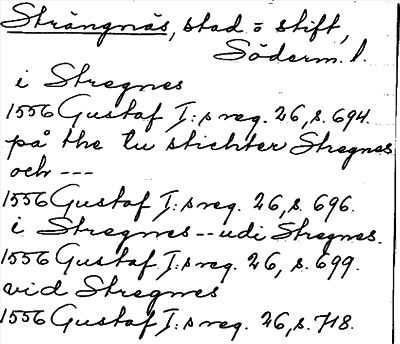 Strängnäs, stad o stift,
Söderm. l.
i Stregnes
1556 Gustaf I:s reg. 26, s. 694.
på the tu stichter Stregnes
och ---
1556 Gustaf I:s reg. 26, s. 696.
i Stregnes -- udi Stregnes.
1556 Gustaf I:s reg. 26, s. 699.
vid Stregnes
1556 Gustaf I:s reg. 26, s. 718.